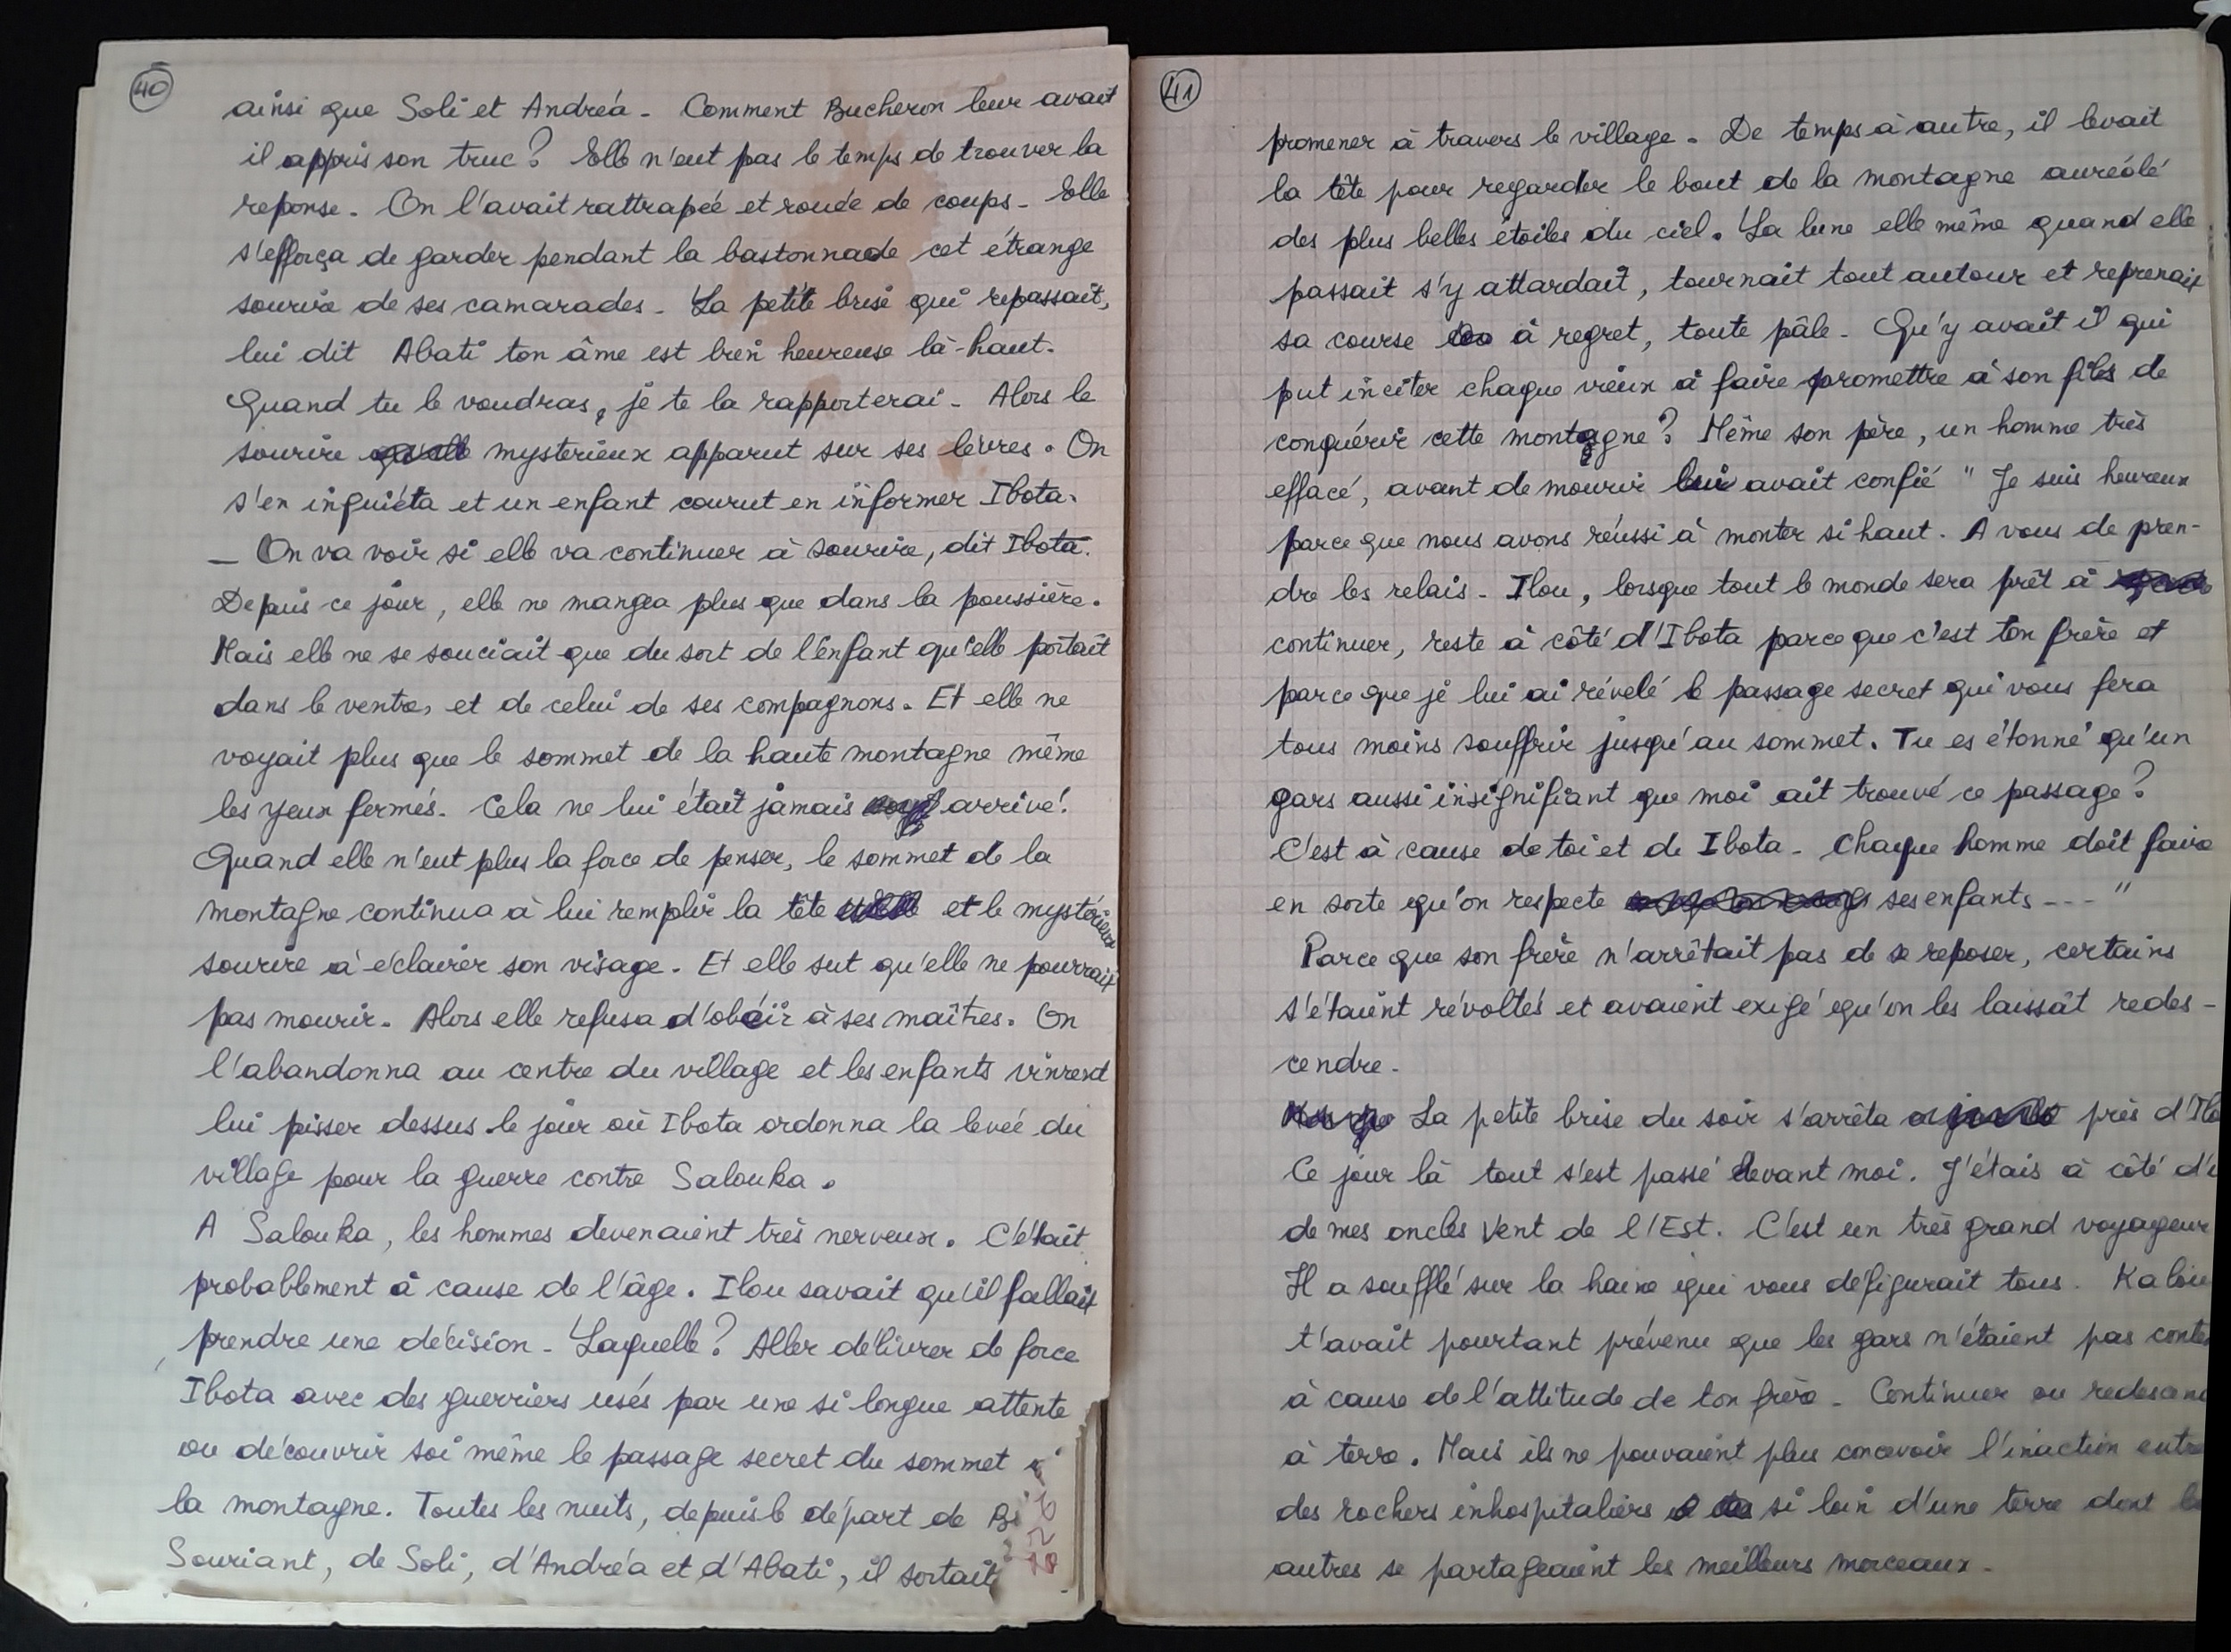 40
ainsi que Soli et Andréa - Comment Bucheron leur avait
il appris son truc ? Elle n'eut pas le temps de trouver la
reponse - On l'avait rattrapée et rouée de coups - Elle
s'efforça de garder pendant la bastonnade cet étrange
sourire de ses camarades - La petite brise qui repassait,
lui dit Abati ton âme est bien heureuse là-haut.
Quand tu le voudras, je te la rapporterai - Alors le
sourire mysterieux apparut sur ses lèvres. On
s'en inquiéta et un enfant courut en informer Ibota.
- On va voir si elle va continuer à sourire, dit Ibota.
Depuis ce jour, elle ne mangea plus que dans la poussière.
Mais elle ne se souciait que du sort de l'enfant qu'elle portait
dans le ventre, et de celui de ses compagnons. Et elle ne
voyait plus que le sommet de la haute montagne même
les yeux fermés. Cela ne lui était jamais arrivé.
Quand elle n'eut plus la force de penser, le sommet de la
montagne continua à lui remplir la tête et le mystérieux
sourire à éclairer son visage. Et elle sut qu'elle ne pourrait
pas mourir. Alors elle refusa d'obéir à ses maîtres. On
l'abandonna au centre du village et les enfants vinrent
lui pisser dessus le jour où Ibota ordonna la levée du
village pour la guerre contre Salouka.
A Salouka, les hommes devenaient très nerveux. C'était
probablement à cause de l'âge. Ilou savait qu'il fallait
prendre une décision - Laquelle ? Aller délivrer de force
Ibota avec des guerriers usés par une si longue attente
ou découvrir soi même le passage secret du sommet
la montagne. Toutes les nuits, depuis le départ de
Souriant, de Soli, d'Andréa et d'Abati, il sortait
41
promener à travers le village - De temps à autre, il levait
la tête pour regarder le bout de la montagne auréolé
des plus belles étoiles du ciel. La lune elle même quand elle
passait s'y attardait, tournait tout autour et reprenait
sa course à regret, toute pâle - Qu'y avait il qui
put inciter chaque vieux à faire promettre à son fils de
conquérir cette montagne ? Même son père, un homme très
effacé, avant de mourir lui avait confié " Je suis heureux
parce que nous avons réussi à monter si haut. A vous de pren-
dre les relais - Ilou, lorsque tout le monde sera prêt à
continuer, reste à côté d'Ibota parce que c'est ton frère et
parce que je lui ai révelé le passage secret qui vous fera
tous moins souffrir jusqu'au sommet. Tu es étonné qu'un
gars aussi insignifiant que moi ait trouvé ce passage ?
C'est à cause de toi et de Ibota - Chaque homme doit faire
en sorte qu'on respecte ses enfants --- "
Parce que son frère n'arrêtait pas de se reposer, certains
s'étaient révoltés et avaient exigé qu'on les laissât redes-
cendre.
La petite brise du soir s'arrêta près
Ce jour là tout s'est passé devant moi. J'étais à côté
de mes oncles Vent de l'Est. C'est un très grand voyageur
Il a soufflé sur la haine qui vous défigurait tous. Kalou
t'avait pourtant prévenu que les gars n'étaient pas
à cause de l'attitude de ton frère - Continuer ou
à terre. Mais ils ne pouvaient plus concevoir l'inaction entre
des rochers inhospitaliers si loin d'une terre dont
autres se partageaient les meilleurs morceaux -